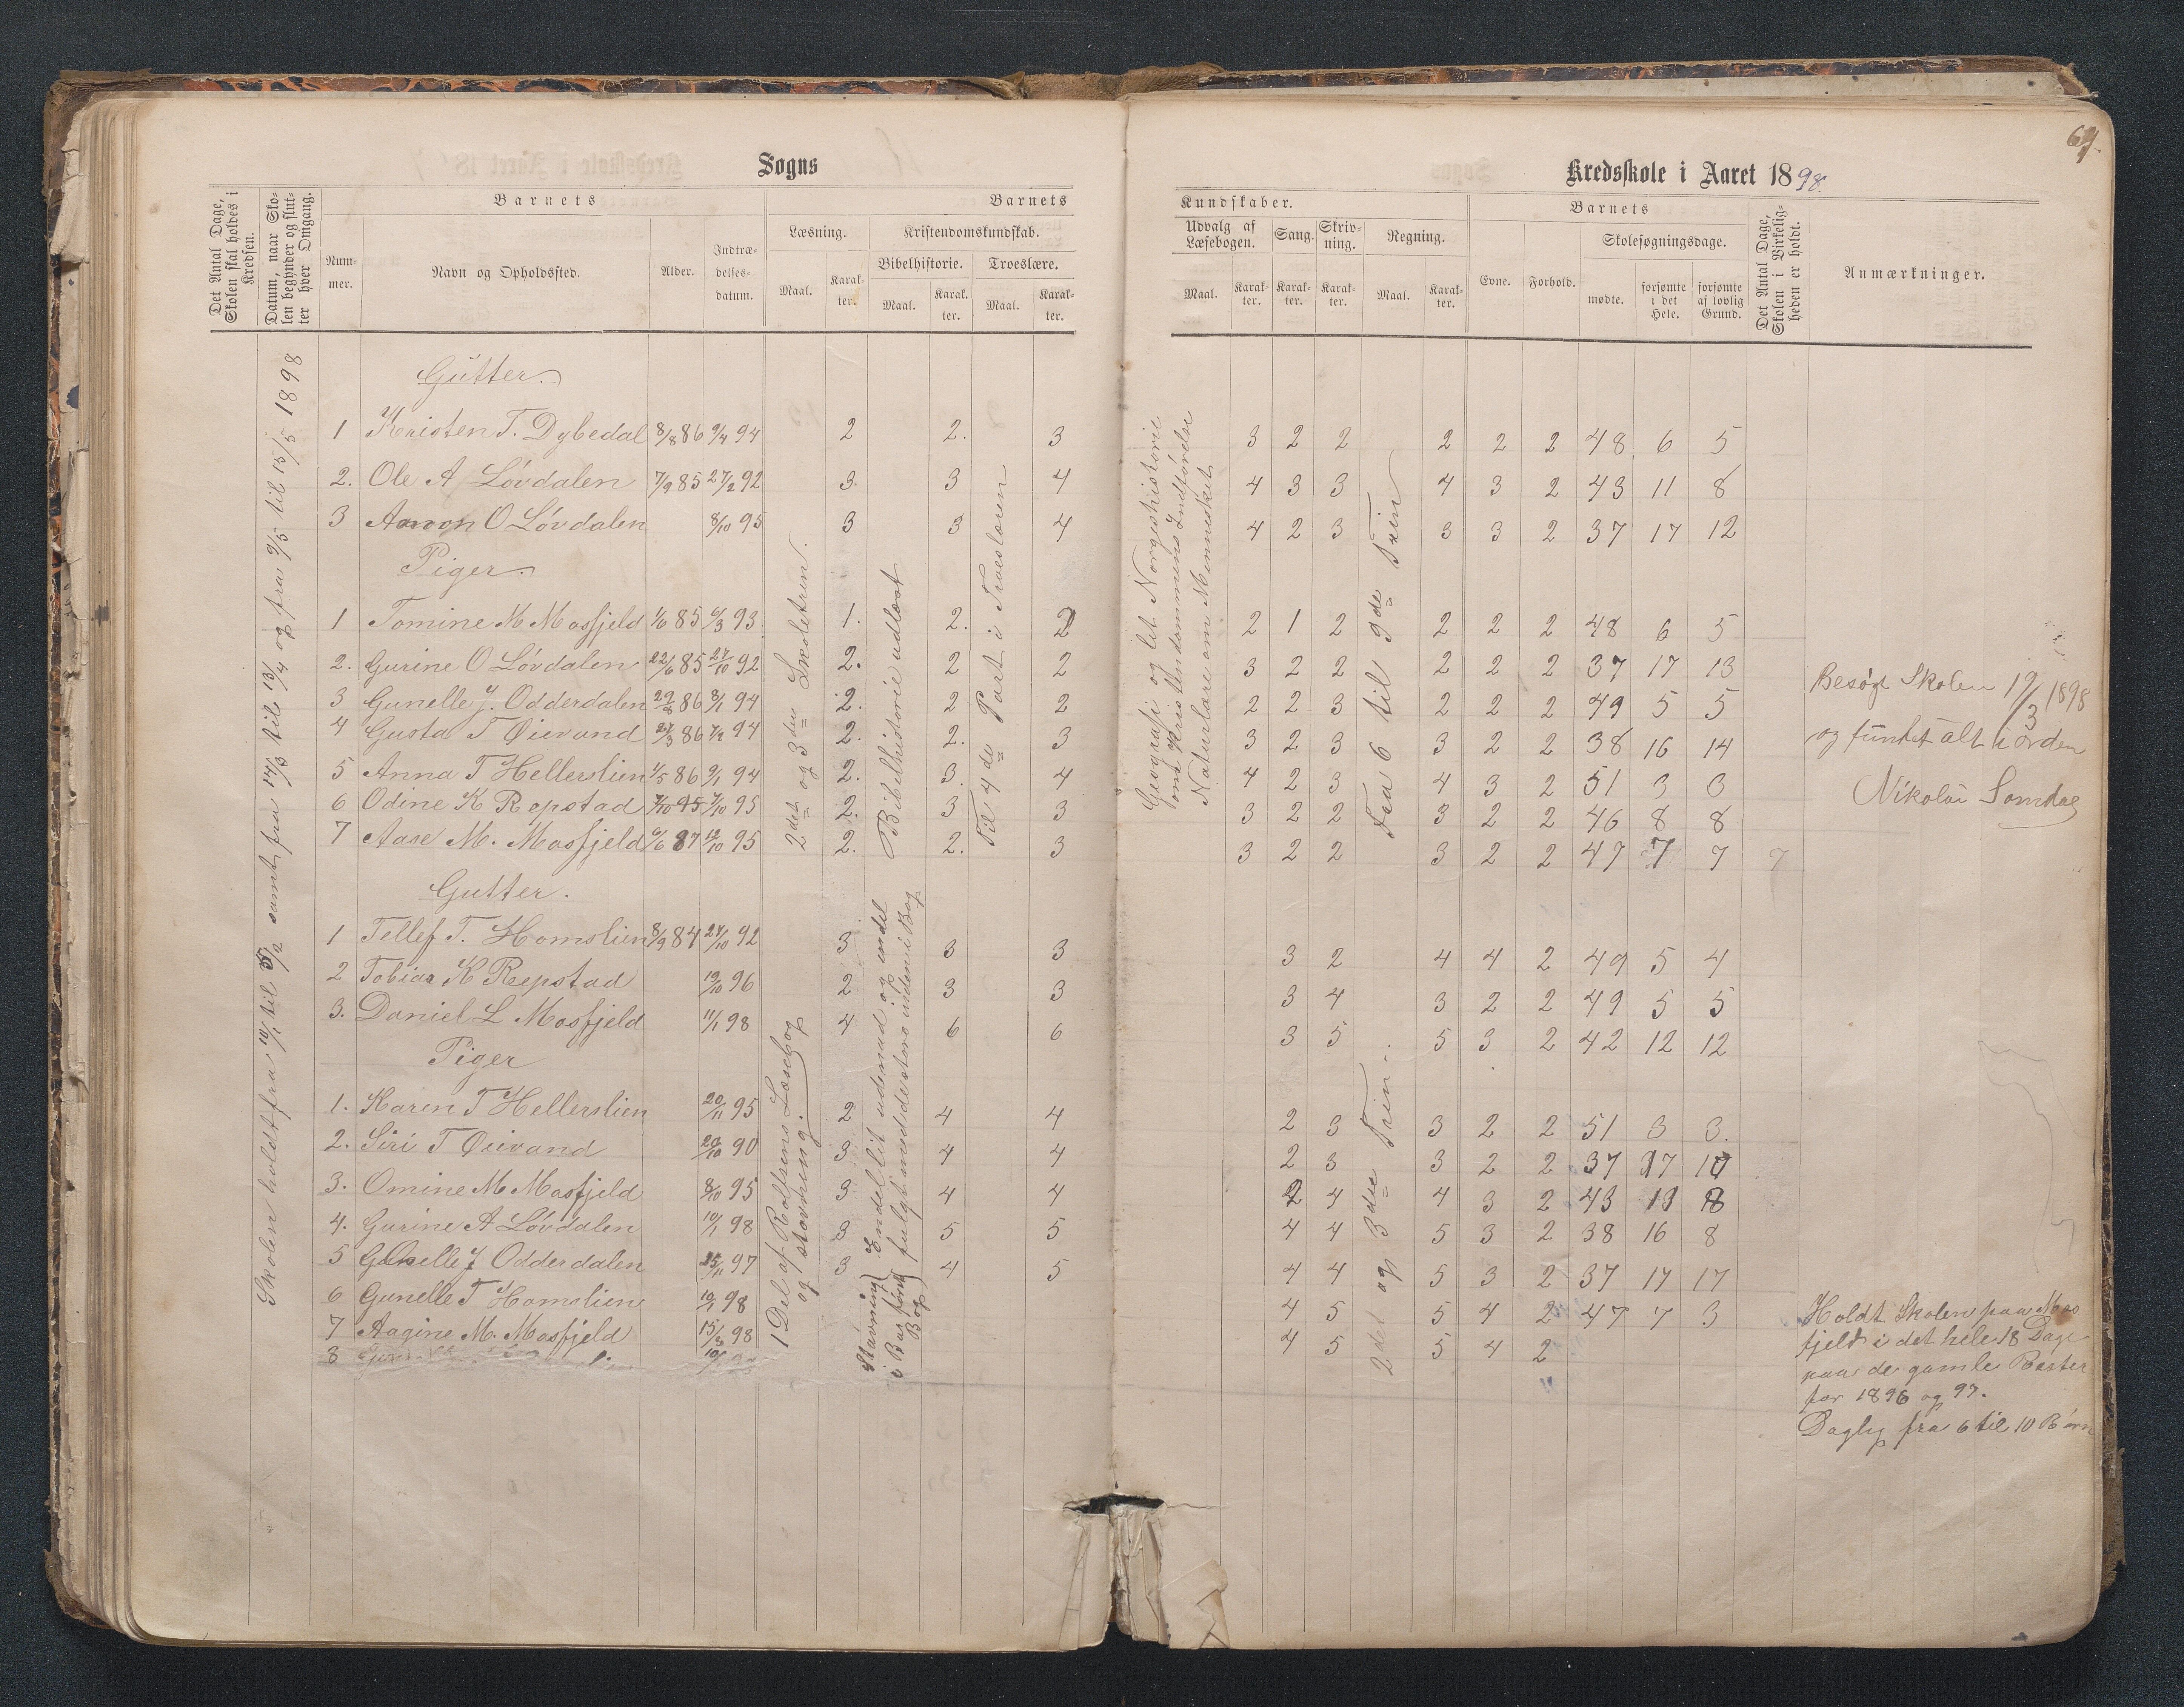 64.
Sogns
Kredsskole i Aaret 1898.
Det Antal Dage, Skolen skal holdes i Kredsen.
Datum, naar Skolen begynder og slutter hver Omgang.
Barnets
Nummer.
Navn og Opholdssted.
Alder.
Indtrædelsesdatum.
Barnets
Læsning.
Maal.
Karakter.
Kristendomskundskab.
Bibelhistorie.
Maal.
Karakter.
Troeslære.
Maal.
Karakter.
Kundskaber.
Udvalg af Læsebogen.
Maal.
Karakter.
Sang.
Karakter.
Skrivning.
Karakter.
Regning.
Maal.
Karakter.
Barnets
Evne.
Forhold.
Skolesøgningsdage.
mødte.
forsømte i det Hele.
forsømte af lovlig Grund.
Det Antal Dage, Skolen i Virkeligheden er holdt.
Anmærkninger.
Skolen holdt fra 10/1 til 5/2 samt fra 14/3 til 13/4 og fra 9/5 til 15/5 1898
2det og 3die Skoletrin.
Bibelhistorie udlæst
Til 4de Part i Troeslæren
Geografi og lit Norgeshistorie
om Kristendommens Indførelse
Naturlære om Mennesket
Fra 6 til 9de Trin
Gutter.
1 Kristen T. Dybedal 8/8 86 9/4 94 2 2. 3 3 2 2 2 2 2 48 6 5
2. Ole A Løvdalen 7/9 85 27/2 92 3. 3 4 4 3 3 4 3 2 43 11 8
3 Aanon O Løvdalen 8/10 95 3 3 4 4 2 3 3 3 2 37 17 12
Piger.
1 Tomine M Mosfjeld 1/6 85 6/3 93 1. 2. 2 2 1 2 2 2 2 48 6 5
2. Gurine O Løvdalen 22/6 85 27/10 92 2. 2 2 3 2 2 2 2 2 37 17 13
3 Gunelle J. Odderdalen 29/2 86 8/1 94 2. 2 2 2 2 3 2 2 2 49 5 5
4 Gusta T Øievand 27/3 86 7/2 94 2. 2. 3 3 2 3 3 2 2 38 16 14
5 Anna T Hellerslien 1/5 86 9/1 94 2. 3. 4 4 2 3 4 3 2 51 3 3
6 Odine K Repstad 7/10 85 7/10 95 2. 3 3 3 2 2 3 2 2 46 8 8
7 Aase M. Mosfjeld 6/6 87 12/10 95 2. 2. 3 3 2 2 3 2 2 47 7 7 7
Besøgt Skolen 19/3 1898
og funtet alt i orden
Nikolai Somdal
1 Del af Rolfsens Læsebog
og stavning.
Stavning i Barføns Bog
Endel lit udenad og endel
fulgt med de store indeni Bog
2det og 3die Trin.
Gutter.
1 Tellef T. Homslien 8/9 84 27/10 92 3 3 3 3 2 4 4 2 49 5 4
2 Tobias K Repstad 19/10 96 2 3 3 3 4 3 2 2 49 5 5
3. Daniel L Mosfjeld 11/1 98 4 6 6 3 5 5 3 2 42 12 12
Piger
1. Karen T Hellerslien 20/11 95 2 4 4 2 3 3 2 2 51 3 3.
2. Siri T Øievand 29/10 90 3 4 4 2 3 3 2 2 37 17 17
3. Omine M Mosfjeld 8/10 95 3 4 4 2 4 4 3 2 43 11 8
4. Gurine A Løvdalen 10/1 98 3 5 5 4 4 5 3 2 38 16 8
5 Gunelle J Odderdalen 25/11 97 3 4 5 4 4 5 3 2 37 17 17
6 Gunelle T Homslien 10/1 98 4 5 5 4 2 47 7 3
7 Aagine M. Mosfjeld 15/3 98 4 5 5 4 2
8
Holdt Skolen paa Mosfjeld i det hele 18 Dage
paa de gamle Rester
for 1896 og 97.
Daglig fra 6 til 10 Børn